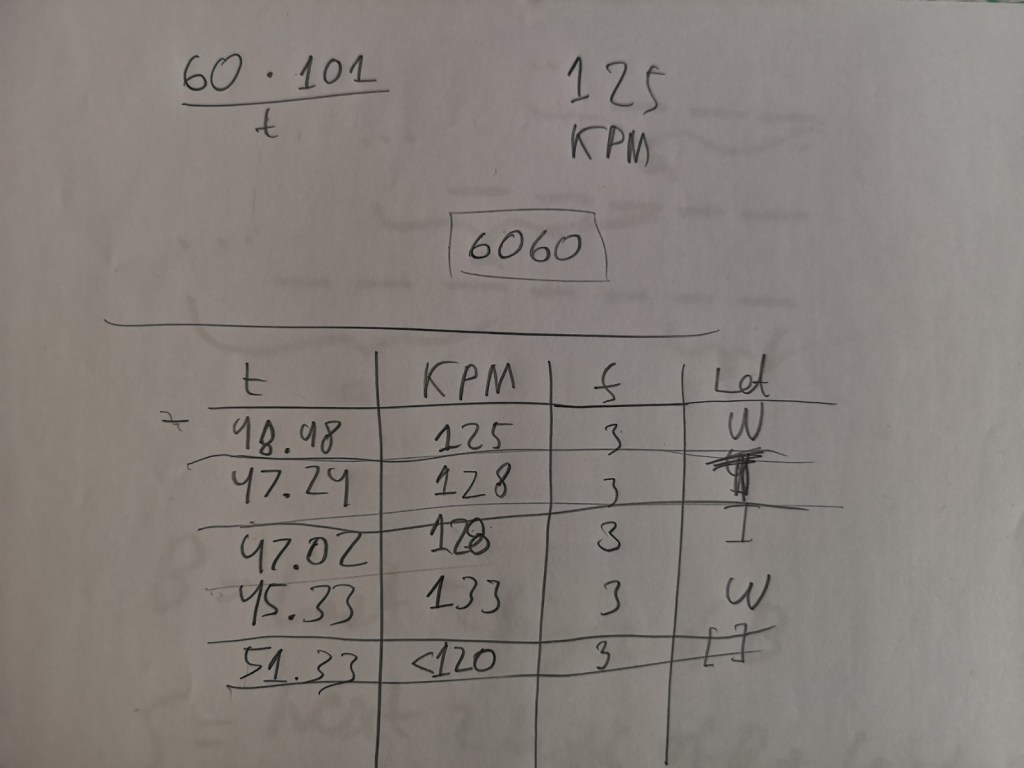 60 · 101 125
t KPM
6060
t KPM f Lot
48.48 125 3 W
47.24 128 3
47.02 128 3 I
45.33 133 3 W
51.33 <120 3 []